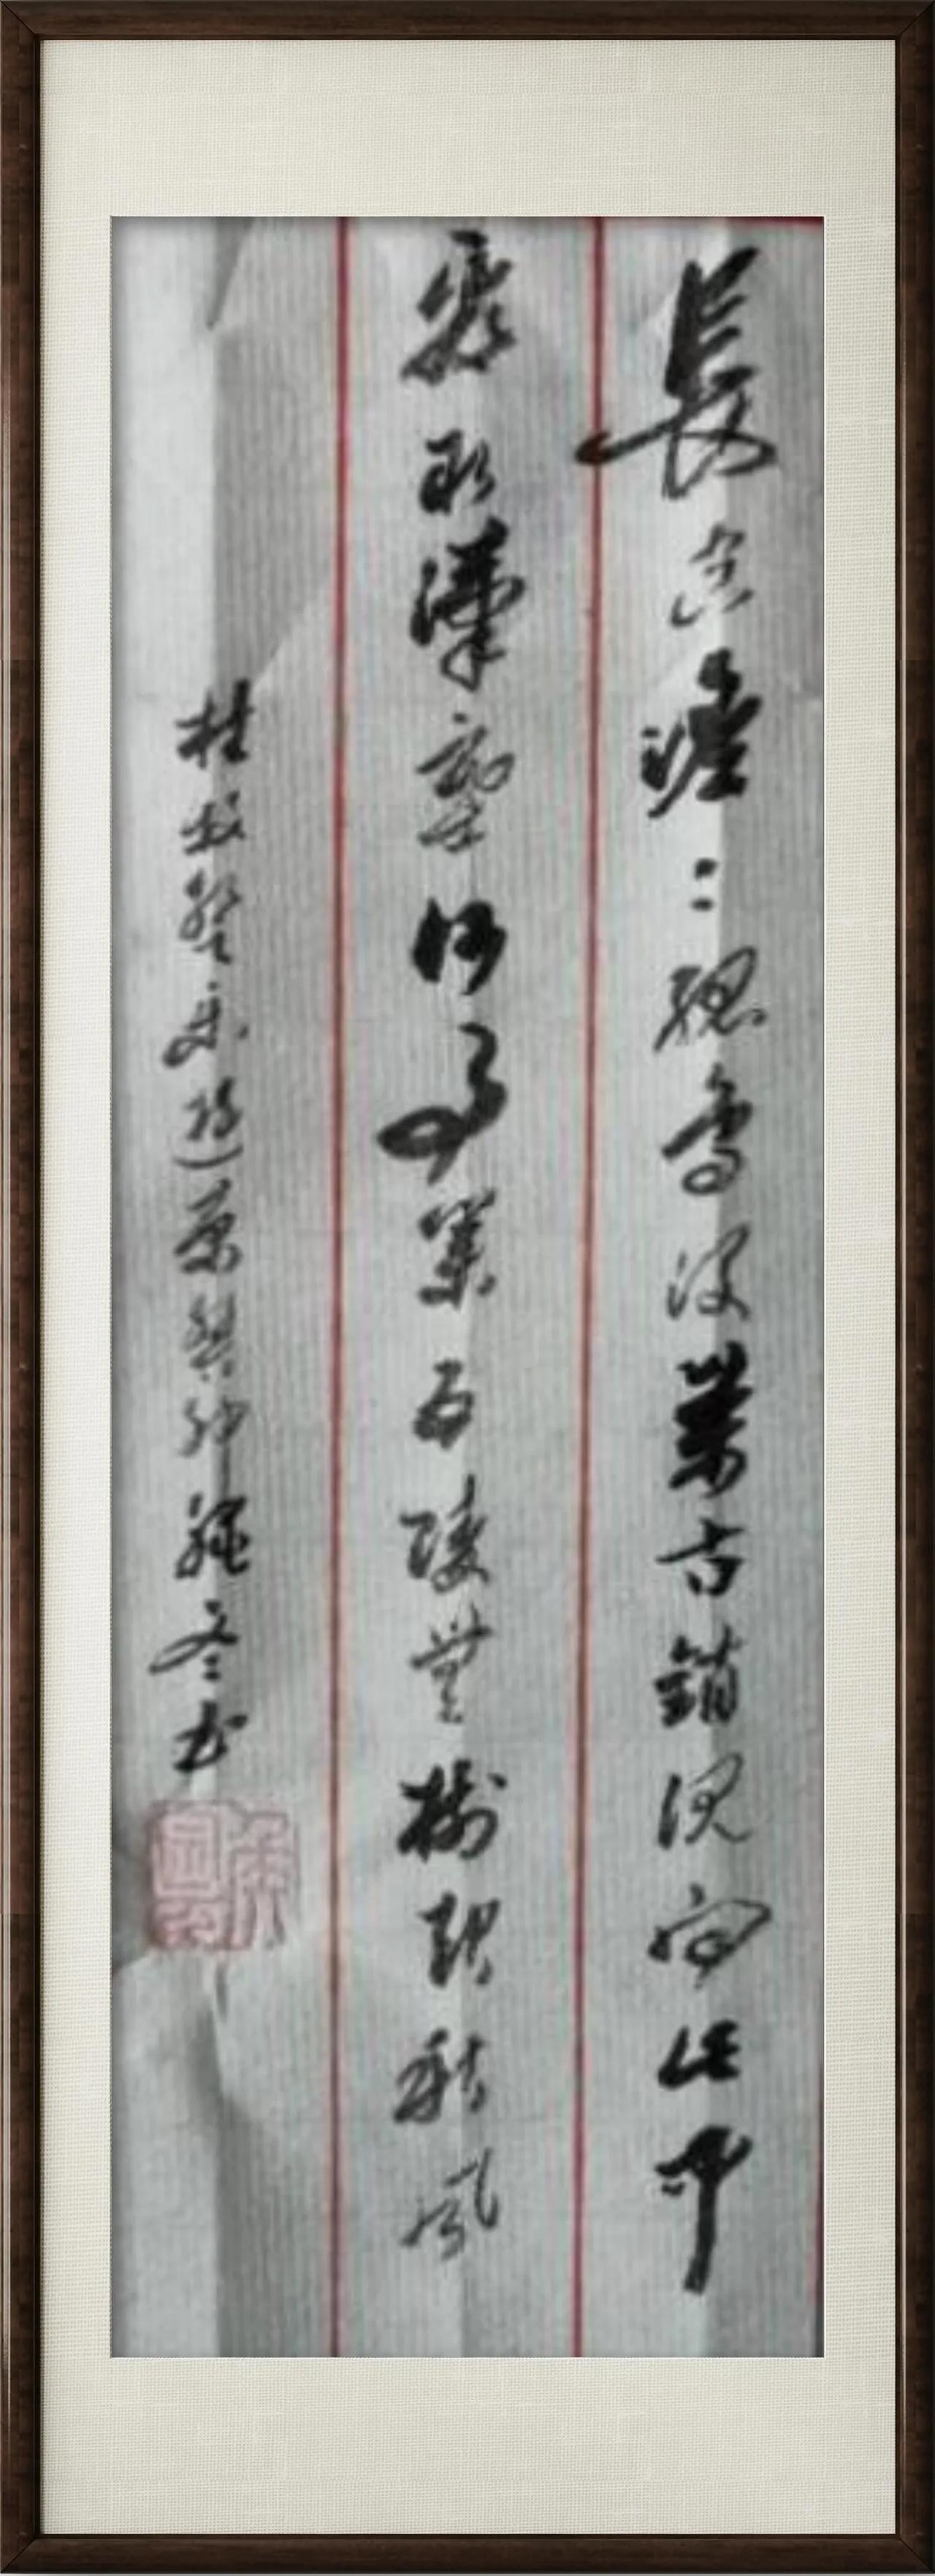 長空澹〻孤鳥没萬古銷沉向此中
看取漢家何事業五陵無樹起秋風
杜牧登樂遊原癸卯冬书